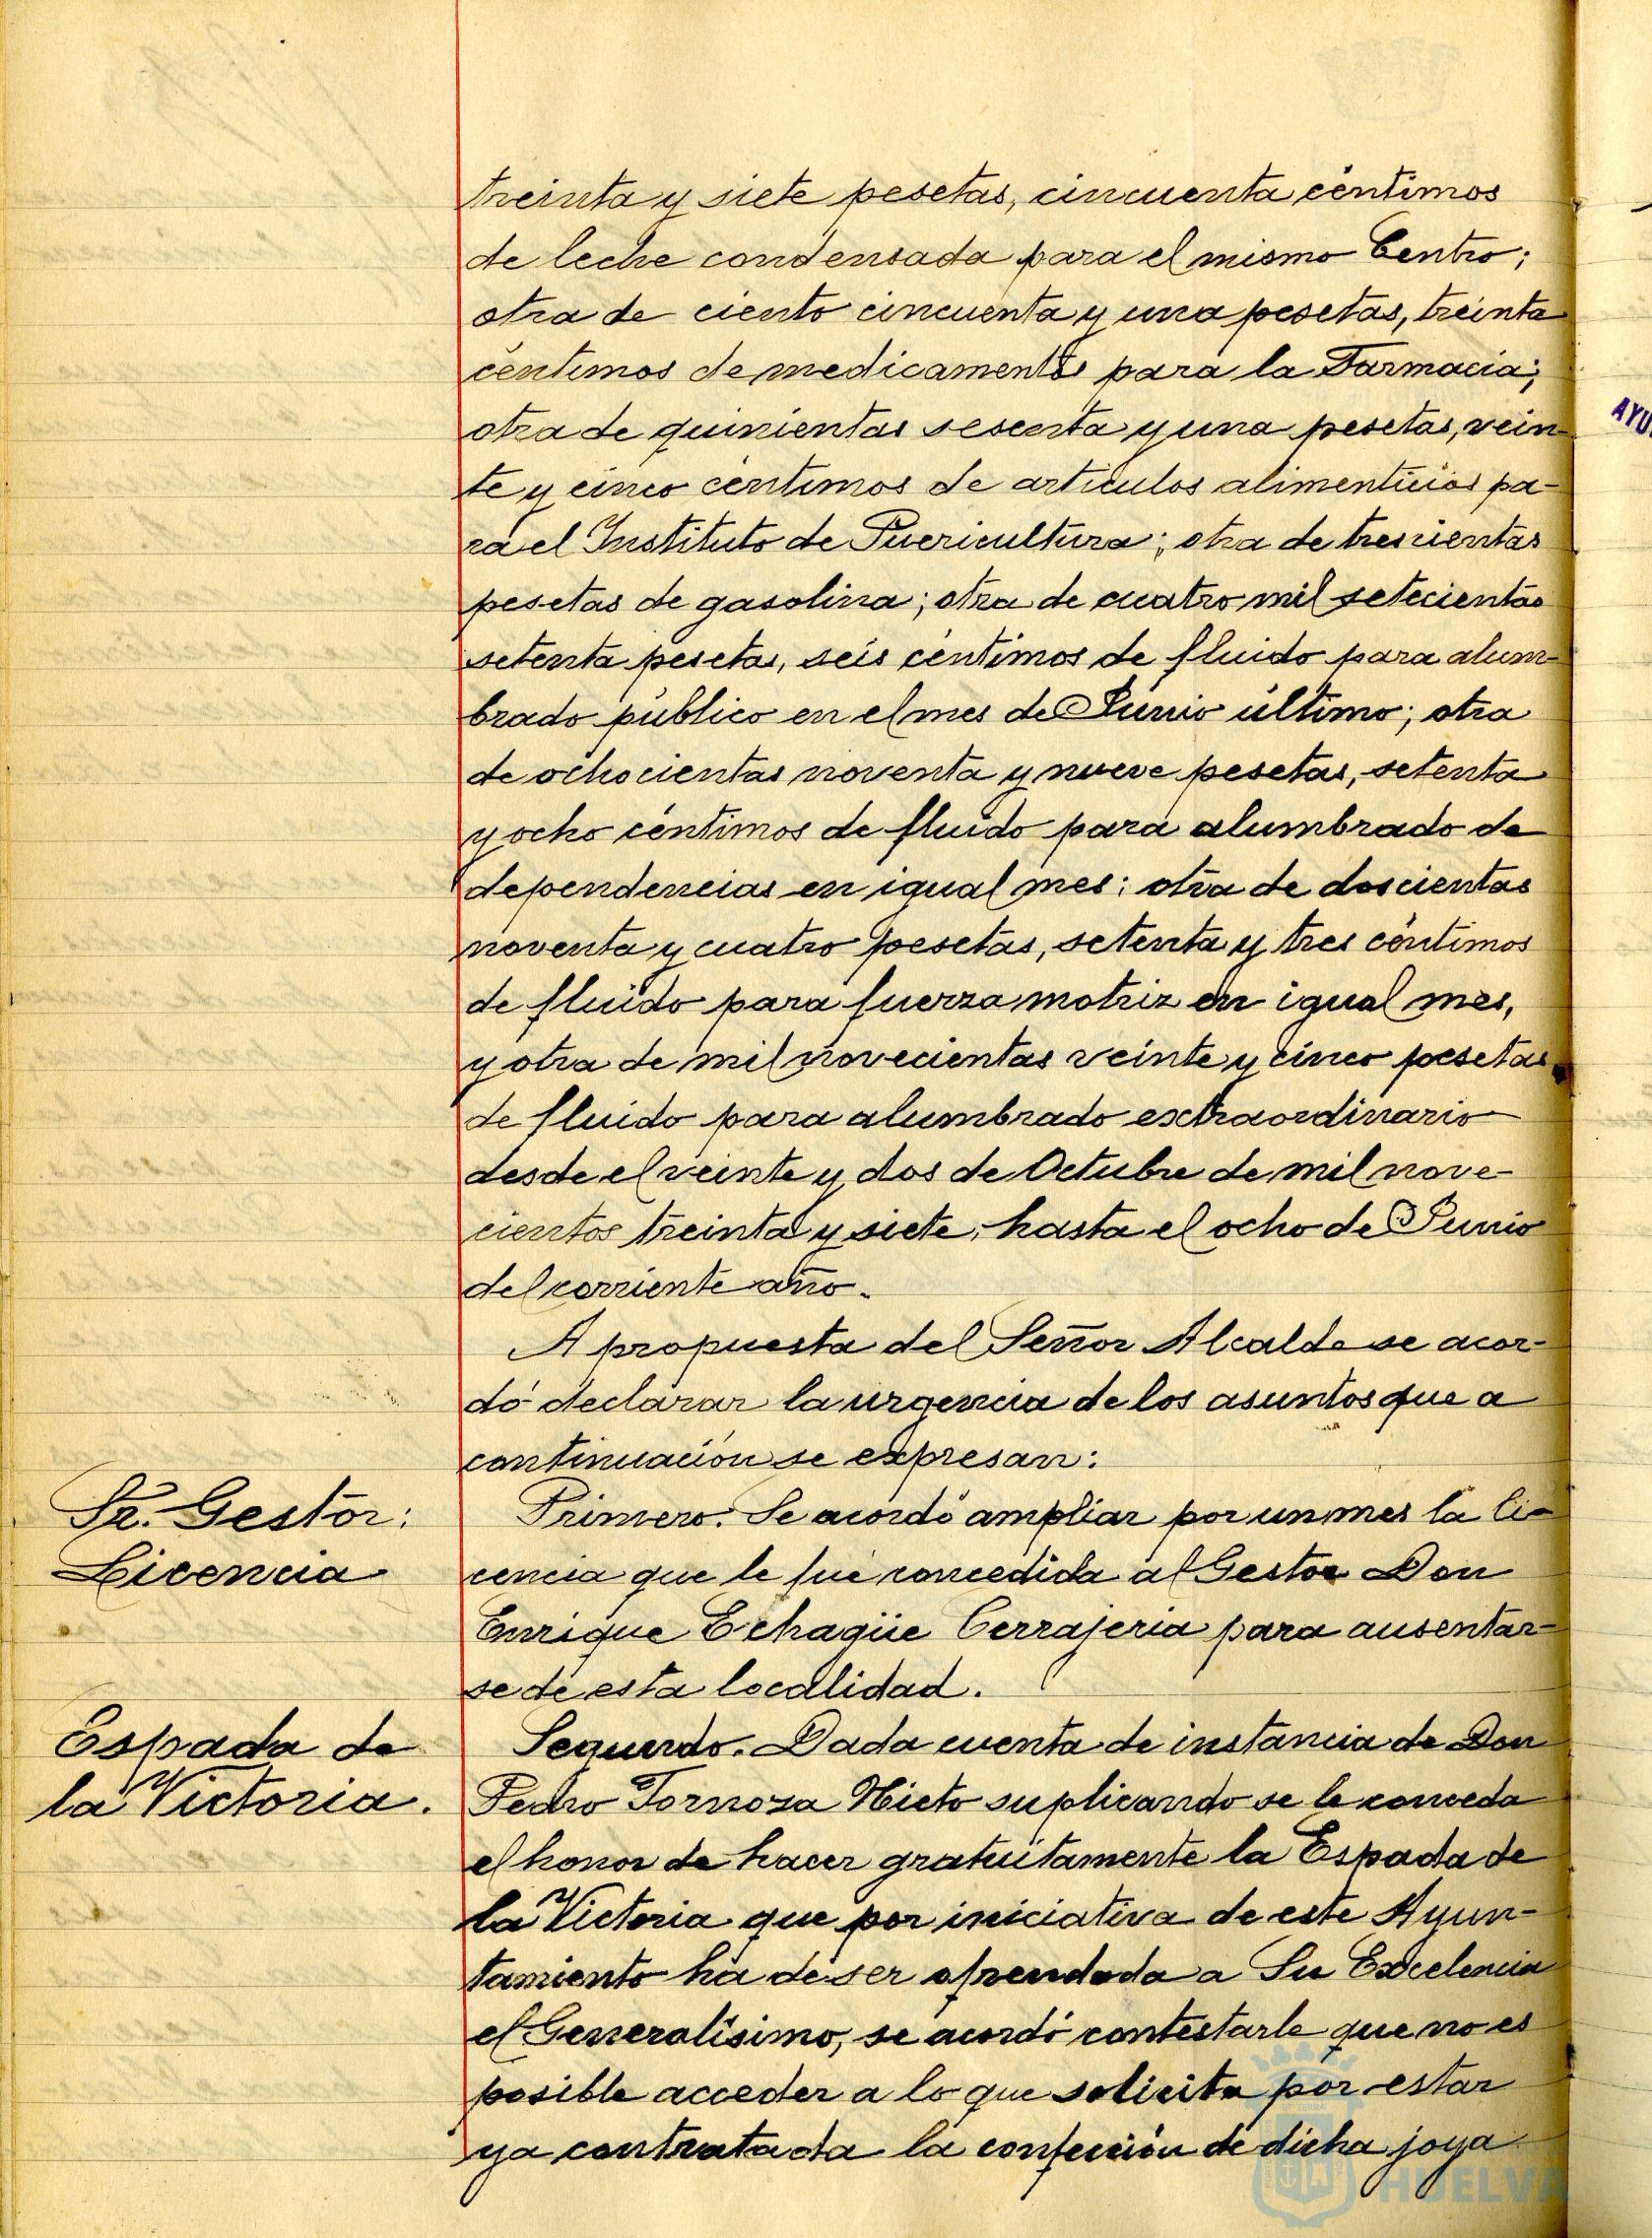 treinta y siete pesetas, cincuenta céntimos
de leche condensada para el mismo Centro;
otra de ciento cincuenta y una pesetas, treinta
céntimos de medicamentos para la Farmacia;
otra de quinientas sesenta y una pesetas, vein-
te y cinco céntimos de artículos alimenticios pa-
ra el Instituto de Puericultura; otra de trescientas
pesetas de gasolina; otra de cuatro mil setecientas
setenta pesetas, seis céntimos de fluido para alum-
brado público en el mes de Junio último; otra
de ochocientas noventa y nueve pesetas, setenta
y ocho céntimos de fluido para alumbrado de
dependencias en igual mes; otra de doscientas
noventa y cuatro pesetas, setenta y tres céntimos
de fluido para fuerza motriz en igual mes,
y otra de mil novecientas veinte y cinco pesetas
de fluido para alumbrado extraordinario
desde el veinte y dos de Octubre de mil nove-
cientos treinta y siete, hasta el ocho de Junio
del corriente año.
A propuesta del Señor Alcalde se acor-
dó declarar la urgencia de los asuntos que a
continuación se expresan:
Sr. Gestor:
Licencia
Primero. Se acordó ampliar por un mes la li-
cencia que le fué concedida al Gestor Don
Enrique Echagüe Cerrajería para ausentar-
se de esta localidad.
Espada de
la Victoria.
Segundo. Dada cuenta de instancia de Don
Pedro Tornoza Nieto suplicando se le conceda
el honor de hacer gratuitamente la Espada de
la Victoria que por iniciativa de este Ayun-
tamiento ha de ser ofrendada a Su Excelencia
el Generalísimo, se acordó contestarle que no es
posible acceder a lo que solicita por estar
ya contratada la confección de dicha joya
AYU
HUELVA